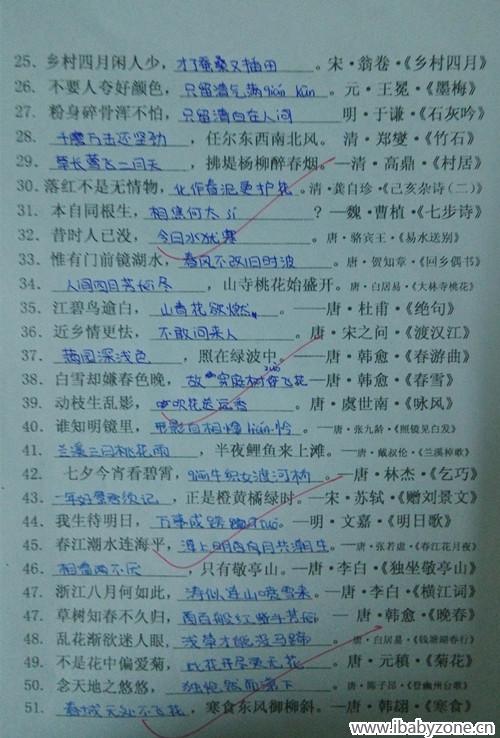 25. 乡村四月闲人少，才了蚕桑又插田。宋·翁卷·《乡村四月》
26. 不要人夸好颜色，只留清气满qián kūn。元·王冕·《墨梅》
27. 粉身碎骨浑不怕，只留清白在人间 明·于谦·《石灰吟》
28. 千磨万击还坚劲，任尔东西南北风。清·郑燮·《竹石》
29. 草长莺飞二月天，拂堤杨柳醉春烟。—清·高鼎·《村居》
30. 落红不是无情物，化作春泥更护花。清·龚自珍·《己亥杂诗（二）》
31. 本自同根生，相煎何太jí？—魏·曹植·《七步诗》
32. 昔时人已没，今日水犹寒。唐·骆宾王·《易水送别》
33. 惟有门前镜湖水，春风不改旧时波。唐·贺知章·《回乡偶书》
34. 人间四月芳菲尽，山寺桃花始盛开。唐·白居易·《大林寺桃花》
35. 江碧鸟逾白，山青花欲燃。—唐·杜甫·《绝句》
36. 近乡情更怯，不敢问来人。—唐·宋之问·《渡汉江》
37. 深浅色，照在绿波中。—唐·韩愈·《春游曲》
38. 白雪却嫌春色晚，故穿庭树作飞花—唐·韩愈·《春雪》
39. 动枝生乱影，吹花送远香。—唐·虞世南·《咏风》
40. 谁知明镜里，形影自相怜lián怜。—唐·张九龄·《照镜见白发》
41. 兰溪三日桃花雨，半夜鲤鱼来上滩。—唐·戴叔伦·《兰溪棹歌》
42. 七夕今宵看碧霄，牵牛织女渡河桥。—唐·林杰·《乞巧》
43. 一年好景君须记，正是橙黄橘绿时。—宋·苏轼·《赠刘景文》
44. 我生待明日，万事成蹉跎tuó。—明·文嘉·《明日歌》
45. 春江潮水连海平，海上明月共潮生。—唐·张若虚·《春江花月夜》
46. 相看两不厌，只有敬亭山。—唐·李白·《独坐敬亭山》
47. 浙江八月何如此，涛似连山喷雪来。—唐·李白·《横江词》
47. 草树知春不久归，百般红紫斗芳菲。—唐·韩愈·《晚春》
48. 乱花渐欲迷人眼，浅草才能没马蹄。—唐·白居易·《钱塘湖春行》
49. 不是花中偏爱菊，此花开尽更无花。—唐·元稹·《菊花》
50. 念天地之悠悠，独怆然而涕下。—唐·陈子昂·《登幽州台歌》
51. 春城无处不飞花，寒食东风御柳斜。—唐·韩翃·《寒食》
www.ibabyzone.cn